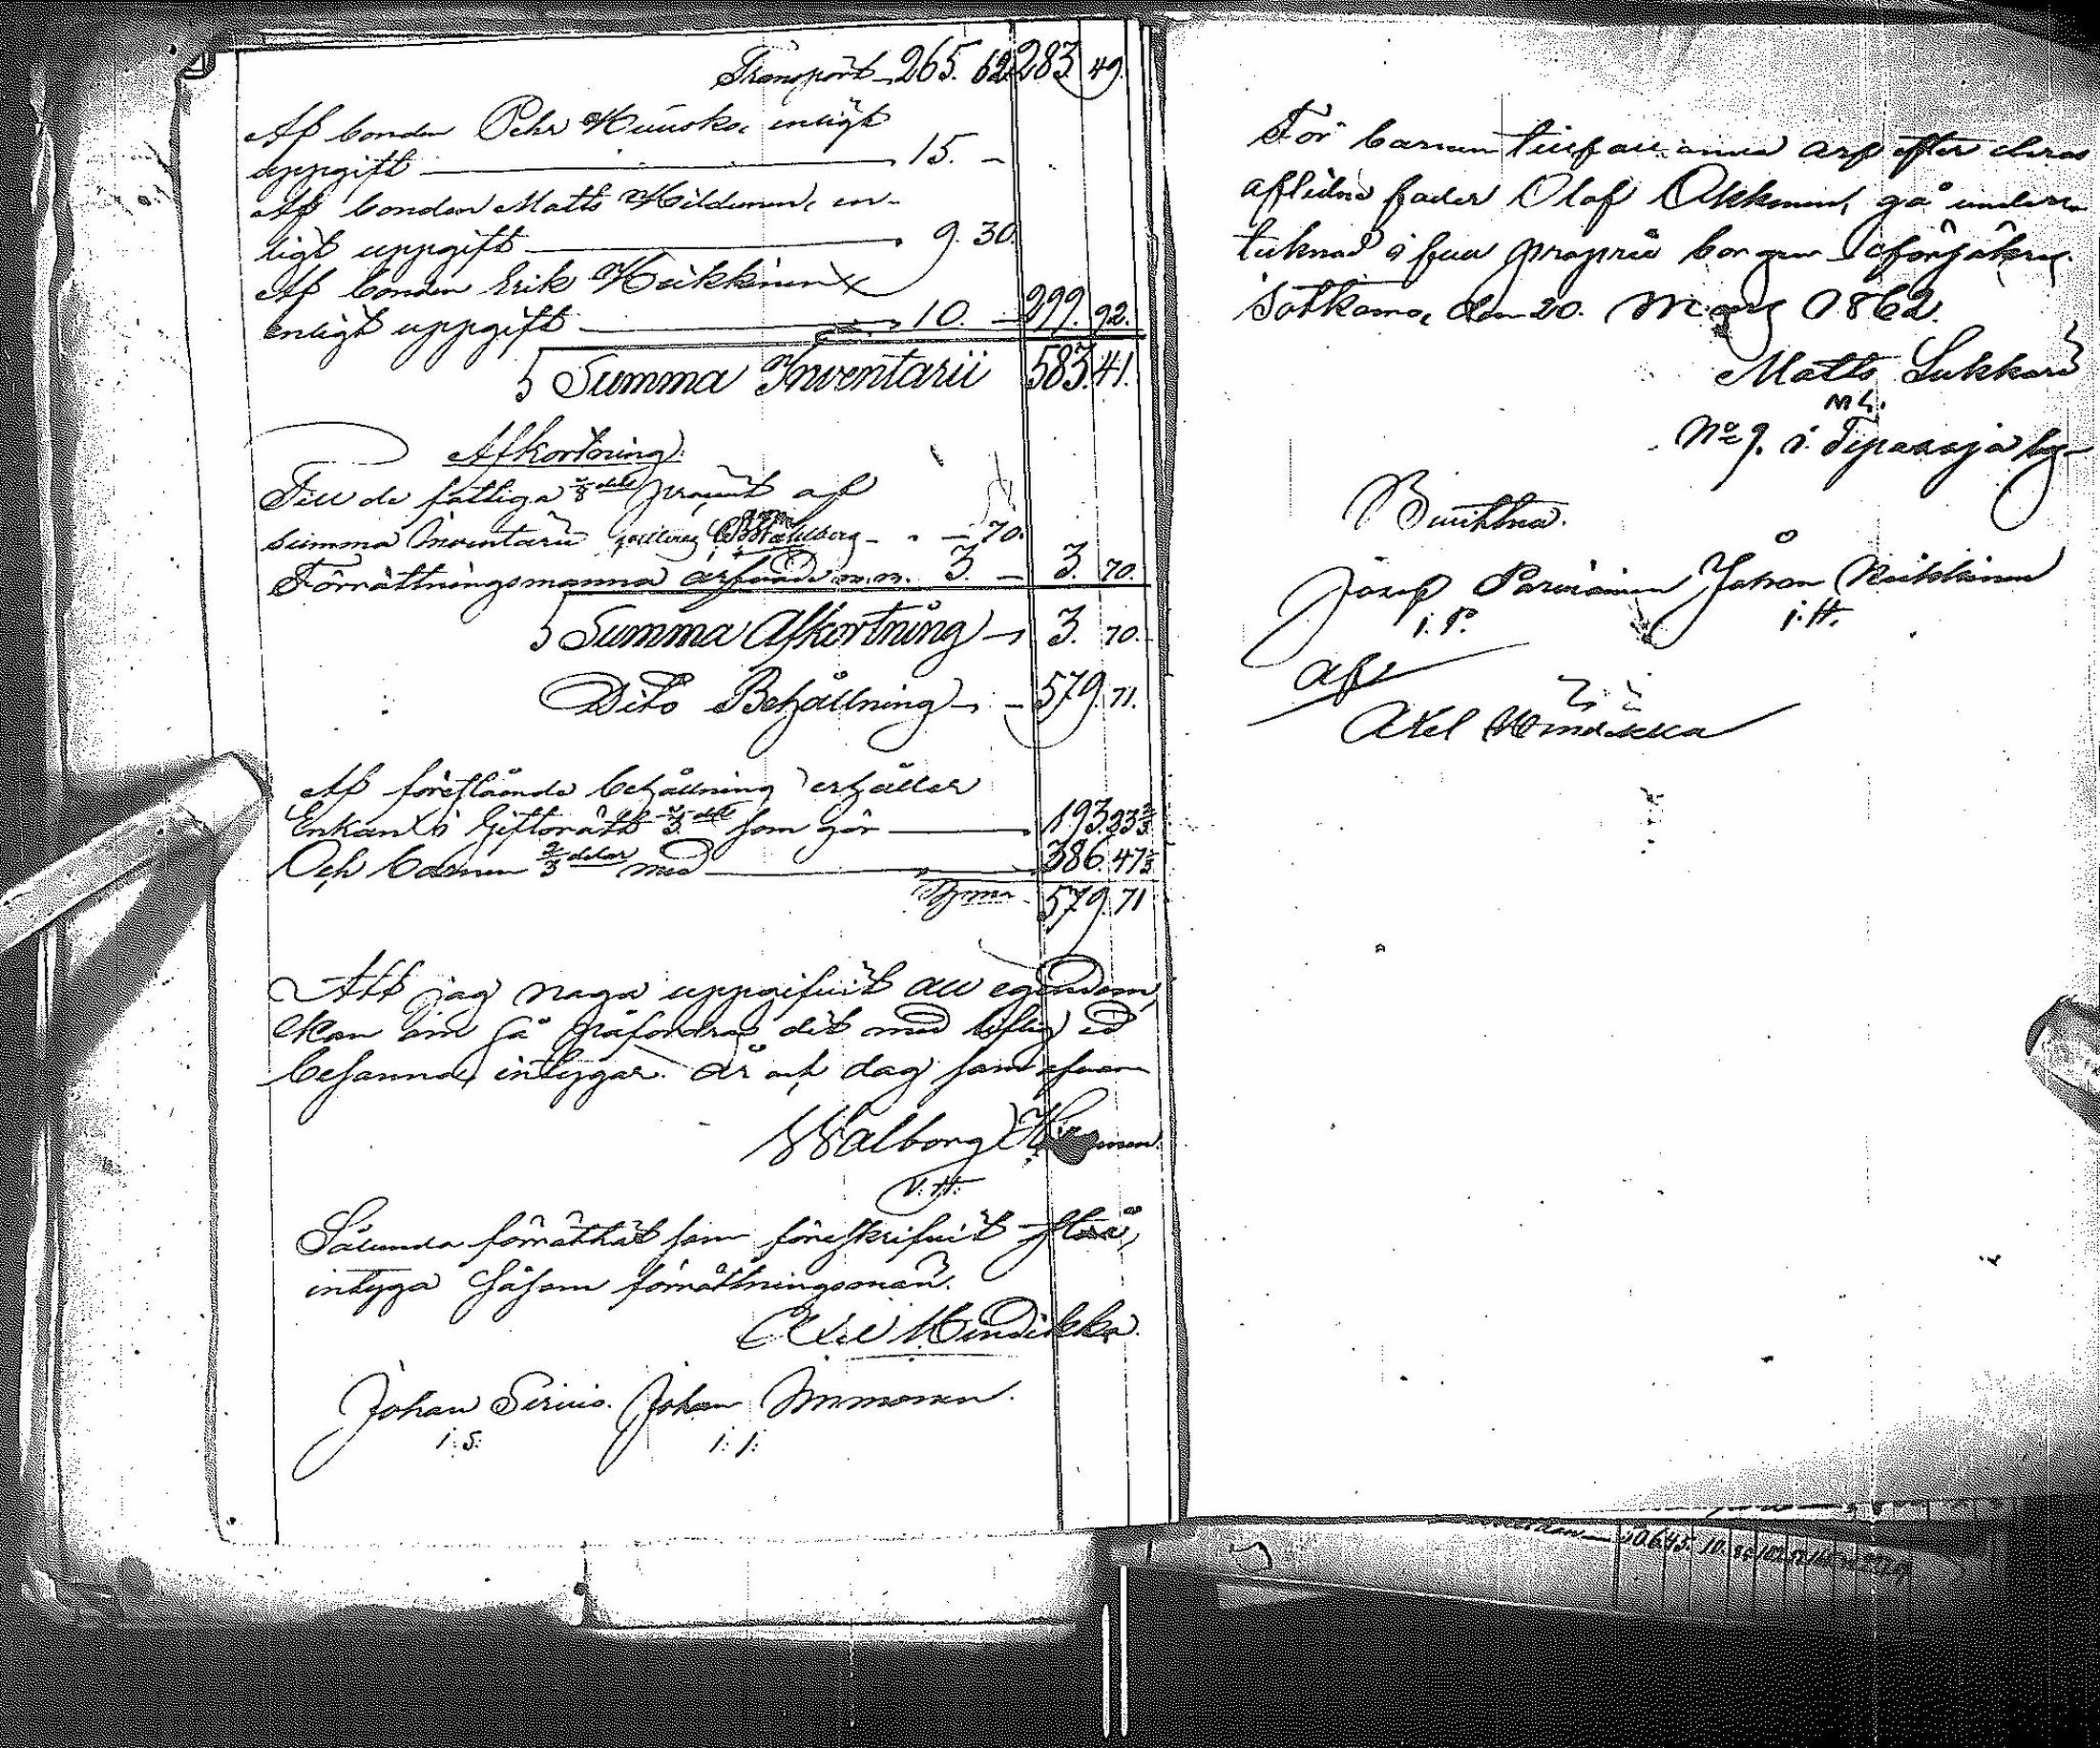 Transport 265. 62 283. 49.
Af bonden Pehr Huusko, enligt
uppgift 15. –
Af bonden Matts Hildunen, en-
ligt uppgift 9. 30.
Af bonden Erik Heikkinen
enligt uppgift 10. – 299. 92.
Summa Inventarii 583. 41.
Afkortning.
Till de fattiga 1/8 dels procent af
summa Inventarii – 70.
Förrättningsmanna arfvode m.m. 3. – 3. 70.
Summa Afkortning 3. 70.
Dito Behållning 579. 71.
Af förestående behållning erhåller
Enkan i Giftorätt 1/3 del som gör 193. 23 2/3
Och barnen 2/3 delar med 386. 47 1/3
Summa 579. 71
Att jag noga uppgifvit all egendom,
kan om så påfordras det med liflig ed
besanna, intygar. År och dag som ofvan
Walborg
V. H.
Sålunda förrättat som föreskrifvit står,
intyga såsom förrättningsman.
Axel Mindikka.
Johan Sirviö. Johan Immonen.
i: S: i: I:
För barnen tillfallande arf efter deras
aflidne fader Olof Okkonen, gå under-
tecknad i full proprie borgen försäkrar
Sotkamo, den 20. Mars 1862.
Matts Lukkari
M L.
No 9. i Tipasoja by
Bevittna.
Josep Parviainen Johan Heikkinen
i. P. i. H.
Axel Mindikka